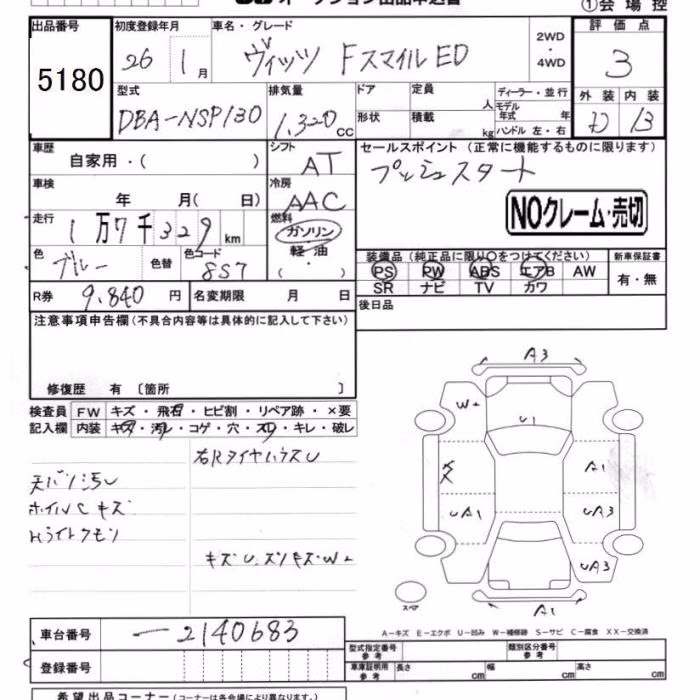 オークション出品申込書
①会場控
出品番号
5180
初度登録年月
26 1月
車名・グレード
ヴィッツ FスマイルED
2WD
・
4WD
評価点
3
型式
DBA-NSP130
排気量
1.320 CC
ドア
形状
定員 人
積載 kg
ディーラー・並行
モデル
年式 年
ハンドル 左・右
外装 内装
D B
車歴
自家用・( )
シフト
AT
セールスポイント (正常に機能するものに限ります)
プッシュスタート
NOクレーム・売切
車検
年 月( 日)
冷房
AAC
走行
1万7千329 km
燃料
ガソリン
軽油
( )
色
ブルー
色替
色コード
8S7
装備品(純正品に限り○をつけてください)
PS PW ABS エアB AW
SR ナビ TV カワ
新車保証書
有・無
R券 9.840 円
名変期限 月 日
後日品
注意事項申告欄(不具合内容等は具体的に記入して下さい)
修復歴 有 〔箇所 〕
検査員
記入欄
FW キズ・飛石・ヒビ割・リペア跡・×要
内装 キズ・汚レ・コゲ・穴・スレ・キレ・破レ
右RタイヤハウスU
天バリ汚レ
ホイルC キズ
Hライトクモリ
キズU.ズリキズ.W2
A3
W2
U1
A1
UA1
UA3
UA3
A1
スペア
A-キズ E-エクボ U-凹み W-補修跡 S-サビ C-腐食 XX-交換済
車台番号
-2140683
登録番号
型式指定番号
参考
類別区分番号
参考
車庫証明用
参考
長さ cm 幅 cm 高さ cm
希望出品コーナー(コーナーは各会場により異なります。)